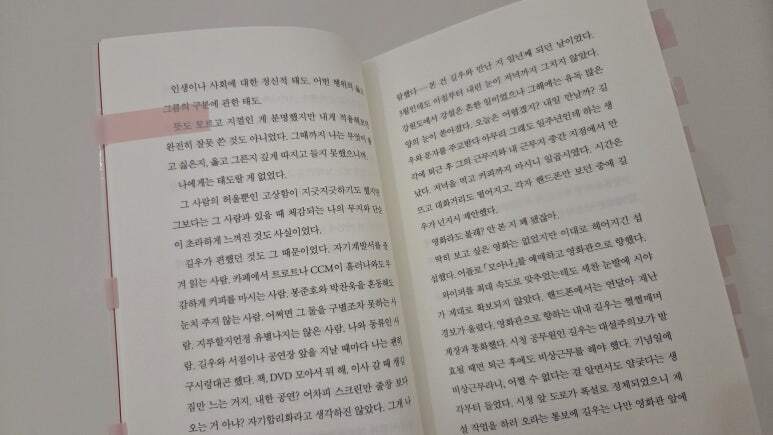 인생이나 사회에 대한 정신적 태도. 어떤 행위의 옳고
그름의 구분에 관한 태도.
뜻도 모르고 지껄인 게 분명했지만 내게 적용해보면
완전히 잘못 쓴 것도 아니었다. 그때까지 나는 무엇이 좋
고 싫은지, 옳고 그른지 깊게 따지고 들지 못했으니까.
나에게는 태도랄 게 없었다.
그 사람의 허울뿐인 고상함이 지긋지긋하기도 했지만
그보다는 그 사람과 있을 때 체감되는 나의 무지와 단순
이 초라하게 느껴진 것도 사실이었다.
길우가 편했던 것도 그 때문이었다. 자기계발서를 즐
겨 읽는 사람. 카페에서 트로트나 CCM이 흘러나와도 무
감하게 커피를 마시는 사람. 봉준호와 박찬욱을 혼동해도
눈치 주지 않는 사람. 어쩌면 그 둘을 구별조차 못하는 사
람. 지루할지언정 유별나지는 않은 사람. 나와 동류인 사
람. 길우와 서점이나 공연장 앞을 지날 때마다 나는 괜히
구시렁대곤 했다. 책, DVD 모아서 뭐 해, 이사 갈 때
짐만 느는 거지. 내한 공연? 어차피 스크린만 줄창 보다
오는 거 아냐? 자기합리화라고 생각하진 않았다. 그게 나
함했다──본 건 길우와 만난 지 일년째 되던 날이었다.
3월인데도 아침부터 내린 눈이 저녁까지 그치지 않았다.
강원도에서 강설은 흔한 일이었으나 그해에는 유독 많은
양의 눈이 쏟아졌다. 오늘은 어렵겠지? 내일 만날까? 길
우와 문자를 주고받다 아무리 그래도 일주년인데 하는 생
각에 퇴근 후 그의 근무지와 내 근무지 중간 지점에서 만
났다. 저녁을 먹고 커피까지 마시니 일곱시였다. 시간은
뜨고 대화거리도 떨어지고, 각자 핸드폰만 보던 중에 길
우가 넌지시 제안했다.
영화라도 볼래? 안 본 지 꽤 됐잖아.
딱히 보고 싶은 영화는 없었지만 이대로 헤어지긴 섭
섭했다. 어플로 「모아나」를 예매하고 영화관으로 향했다.
와이퍼를 최대 속도로 맞추었는데도 세찬 눈발에 시야
가 제대로 확보되지 않았다. 핸드폰에서는 연달아 재난
경보가 울렸다. 영화관으로 향하는 내내 길우는 쩔쩔매며
계장과 통화했다. 시청 공무원인 길우는 대설주의보가 발
효될 때면 퇴근 후에도 비상근무를 해야 했다. 기념일에
비상근무라니, 어쩔 수 없다는 걸 알면서도 얄궂다는 생
각부터 들었다. 시청 앞 도로가 폭설로 정체되었으니 제
설 작업을 하러 오라는 통보에 길우는 나만 영화관 앞에